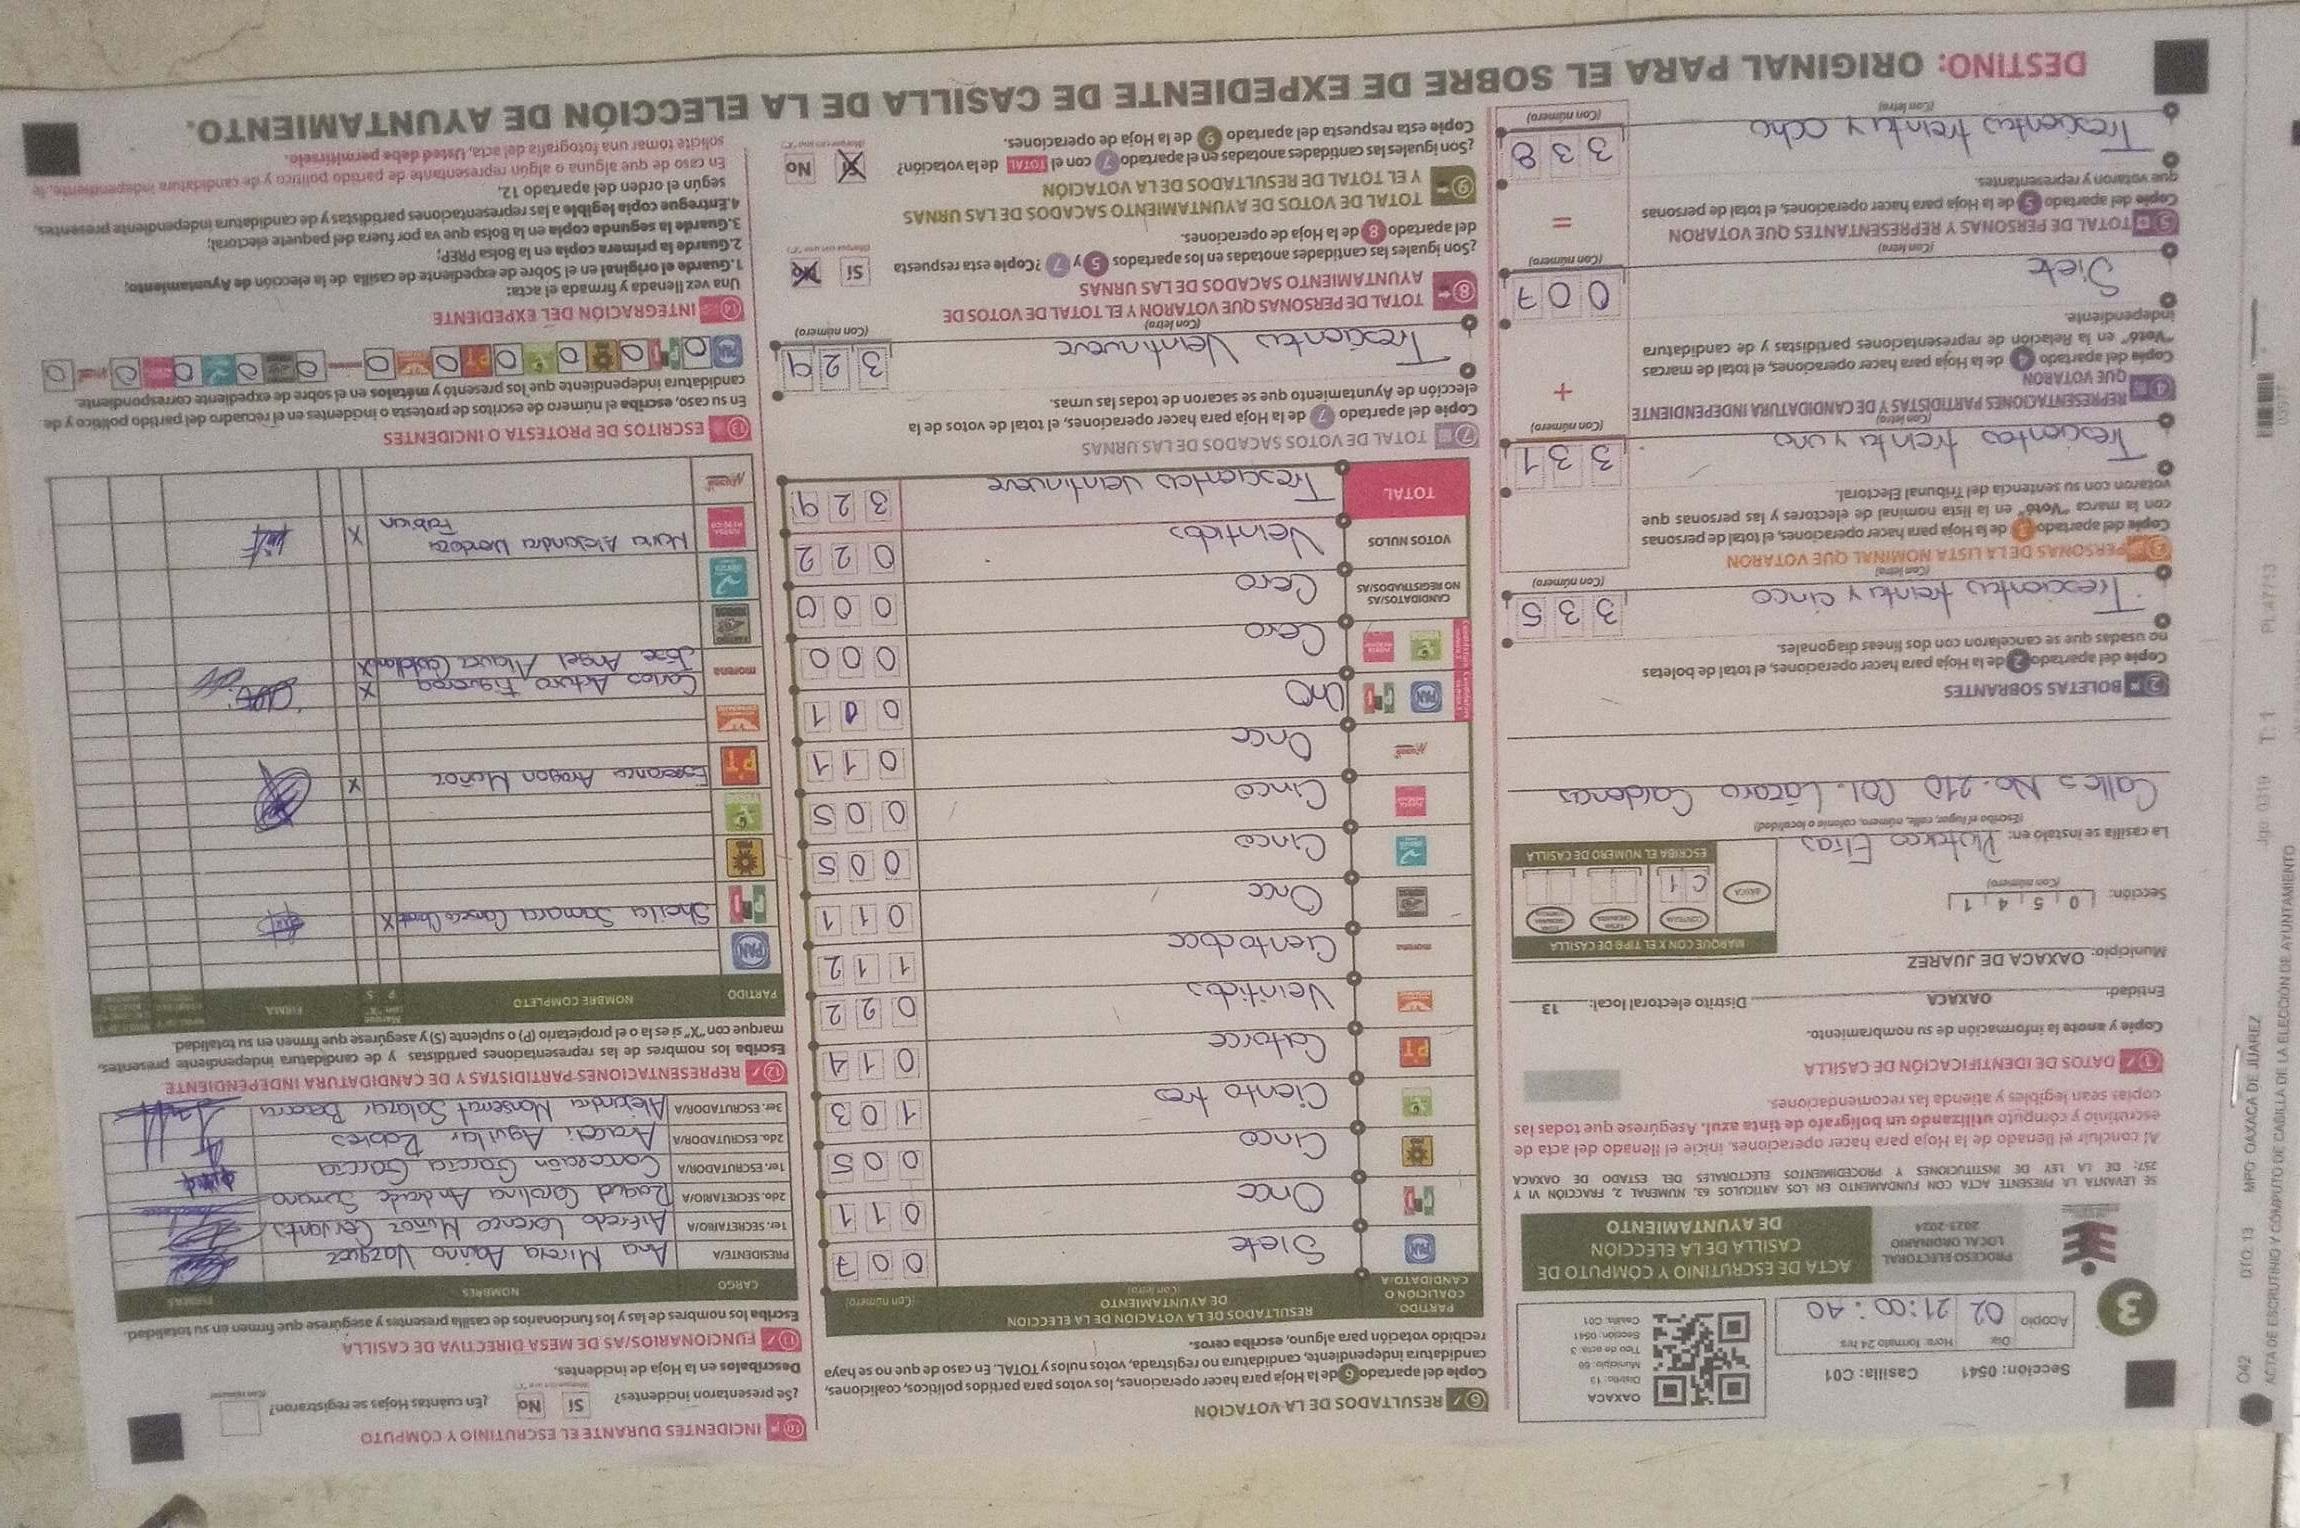 Sección: 0541 Casilla: C01
3
Acopio
Día: 02
Hora: formato 24 hrs 21:00:40
OAXACA
Distrito: 13
Municipio: 66
Tipo de acta: 3
Sección: 0541
Casilla: C01
PROCESO ELECTORAL
LOCAL ORDINARIO
2023-2024
ACTA DE ESCRUTINIO Y CÓMPUTO DE
CASILLA DE LA ELECCIÓN
DE AYUNTAMIENTO
SE LEVANTA LA PRESENTE ACTA CON FUNDAMENTO EN LOS ARTÍCULOS 63, NUMERAL 2, FRACCIÓN VI Y
257; DE LA LEY DE INSTITUCIONES Y PROCEDIMIENTOS ELECTORALES DEL ESTADO DE OAXACA
Al concluir el llenado de la Hoja para hacer operaciones, inicie el llenado del acta de
escrutinio y cómputo utilizando un bolígrafo de tinta azul. Asegúrese que todas las
copias sean legibles y atienda las recomendaciones.
1 DATOS DE IDENTIFICACIÓN DE CASILLA
Copie y anote la información de su nombramiento.
Entidad: OAXACA Distrito electoral local: 13
Municipio: OAXACA DE JUÁREZ
Sección: 0 5 4 1
(Con número)
MARQUE CON X EL TIPO DE CASILLA
BÁSICA
CONTIGUA
C 1
ESCRIBA EL NÚMERO DE CASILLA
La casilla se instaló en: Plutarco Elias
(Escriba el lugar, calle, número, colonia o localidad)
Calles No. 210 Col. Lázaro Cardenas
2 BOLETAS SOBRANTES
Copie del apartado 2 de la Hoja para hacer operaciones, el total de boletas
no usadas que se cancelaron con dos líneas diagonales.
Trescientas treinta y cinco
335
(Con letra)
(Con número)
3 PERSONAS DE LA LISTA NOMINAL QUE VOTARON
Copie del apartado 3 de la Hoja para hacer operaciones, el total de personas
con la marca "Votó" en la lista nominal de electores y las personas que
votaron con su sentencia del Tribunal Electoral.
Trescientos treinta y uno
331
(Con letra)
(Con número)
4 REPRESENTACIONES PARTIDISTAS Y DE CANDIDATURA INDEPENDIENTE
QUE VOTARON
Copie del apartado 4 de la Hoja para hacer operaciones, el total de marcas
"Votó" en la Relación de representaciones partidistas y de candidatura
independiente.
+
Siete
007
(Con letra)
(Con número)
5 TOTAL DE PERSONAS Y REPRESENTANTES QUE VOTARON
Copie del apartado 5 de la Hoja para hacer operaciones, el total de personas
que votaron y representantes.
=
Trescientos treinta y ocho
338
(Con letra)
(Con número)
6 RESULTADOS DE LA VOTACIÓN
Copie del apartado 6 de la Hoja para hacer operaciones, los votos para partidos políticos, coaliciones,
candidatura independiente, candidatura no registrada, votos nulos y TOTAL. En caso de que no se haya
recibido votación para alguno, escriba ceros.
PARTIDO,
COALICIÓN O
CANDIDATO/A
RESULTADOS DE LA VOTACIÓN DE LA ELECCIÓN
DE AYUNTAMIENTO
(Con letra)
(Con número)
PAN Siete 007
PRI Once 011
Cinco 005
Ciento tres 103
PT Catorce 014
Veintidos 022
morena Ciento doce 112
Once 011
Cinco 005
Cinco 005
Once 011
PAN PRI Uno 001
Cero 000
CANDIDATOS/AS
NO REGISTRADOS/AS Cero 000
VOTOS NULOS Veintidos 022
TOTAL Trescientos Veintinueve 329
7 TOTAL DE VOTOS SACADOS DE LAS URNAS
Copie del apartado 7 de la Hoja para hacer operaciones, el total de votos de la
elección de Ayuntamiento que se sacaron de todas las urnas.
Trescientos Veintinueve
329
(Con letra)
(Con número)
8 TOTAL DE PERSONAS QUE VOTARON Y EL TOTAL DE VOTOS DE
AYUNTAMIENTO SACADOS DE LAS URNAS
¿Son iguales las cantidades anotadas en los apartados 5 y 7? Copie esta respuesta
del apartado 8 de la Hoja de operaciones.
SÍ
No
9 TOTAL DE VOTOS DE AYUNTAMIENTO SACADOS DE LAS URNAS
Y EL TOTAL DE RESULTADOS DE LA VOTACIÓN
¿Son iguales las cantidades anotadas en el apartado 7 con el TOTAL de la votación?
Copie esta respuesta del apartado 9 de la Hoja de operaciones.
Sí
No
10 INCIDENTES DURANTE EL ESCRUTINIO Y CÓMPUTO
¿Se presentaron incidentes? SÍ No ¿En cuántas Hojas se registraron?
(Con número)
Descríbalos en la Hoja de incidentes.
11 FUNCIONARIOS/AS DE MESA DIRECTIVA DE CASILLA
Escriba los nombres de las y los funcionarios de casilla presentes y asegúrese que firmen en su totalidad.
CARGO NOMBRES FIRMAS
PRESIDENTE/A Ana Mireya Aquino Vazquez
1er. SECRETARIO/A Alfredo Lorenzo Muñoz Cervantes
2do. SECRETARIO/A Raquel Carolina Andrade Sumano
1er. ESCRUTADOR/A Concepción García García
2do. ESCRUTADOR/A Araceli Aguilar Robles
3er. ESCRUTADOR/A Alejandra Monserrat Salazar Becerra
12 REPRESENTACIONES PARTIDISTAS Y DE CANDIDATURA INDEPENDIENTE
Escriba los nombres de las representaciones partidistas y de candidatura independiente presentes,
marque con "X" si es la o el propietario (P) o suplente (S) y asegúrese que firmen en su totalidad.
PARTIDO NOMBRE COMPLETO P S FIRMA
PAN
PRI Sheila Samara X
PT Esperanza Aragon Muñoz X
morena Carlos Arturo Figueroa X
Jose Angel X
Maria Alejandra Mendoza X
Fabian
13 ESCRITOS DE PROTESTA O INCIDENTES
En su caso, escriba el número de escritos de protesta o incidentes en el recuadro del partido político y de
candidatura independiente que los presentó y métalos en el sobre de expediente correspondiente.
0 0 0 0 0 0 0 0 0 0 0
14 INTEGRACIÓN DEL EXPEDIENTE
Una vez llenada y firmada el acta:
1.Guarde el original en el Sobre de expediente de casilla de la elección de Ayuntamiento;
2.Guarde la primera copia en la Bolsa PREP;
3.Guarde la segunda copia en la Bolsa que va por fuera del paquete electoral;
4.Entregue copia legible a las representaciones partidistas y de candidatura independiente presentes,
según el orden del apartado 12.
En caso de que alguna o algún representante de partido político y de candidatura independiente, le
solicite tomar una fotografía del acta, Usted debe permitírselo.
DESTINO: ORIGINAL PARA EL SOBRE DE EXPEDIENTE DE CASILLA DE LA ELECCIÓN DE AYUNTAMIENTO.
ACTA DE ESCRUTINIO Y CÓMPUTO DE CASILLA DE LA ELECCIÓN DE AYUNTAMIENTO
DTO: 13 MPO: OAXACA DE JUÁREZ
T: 1